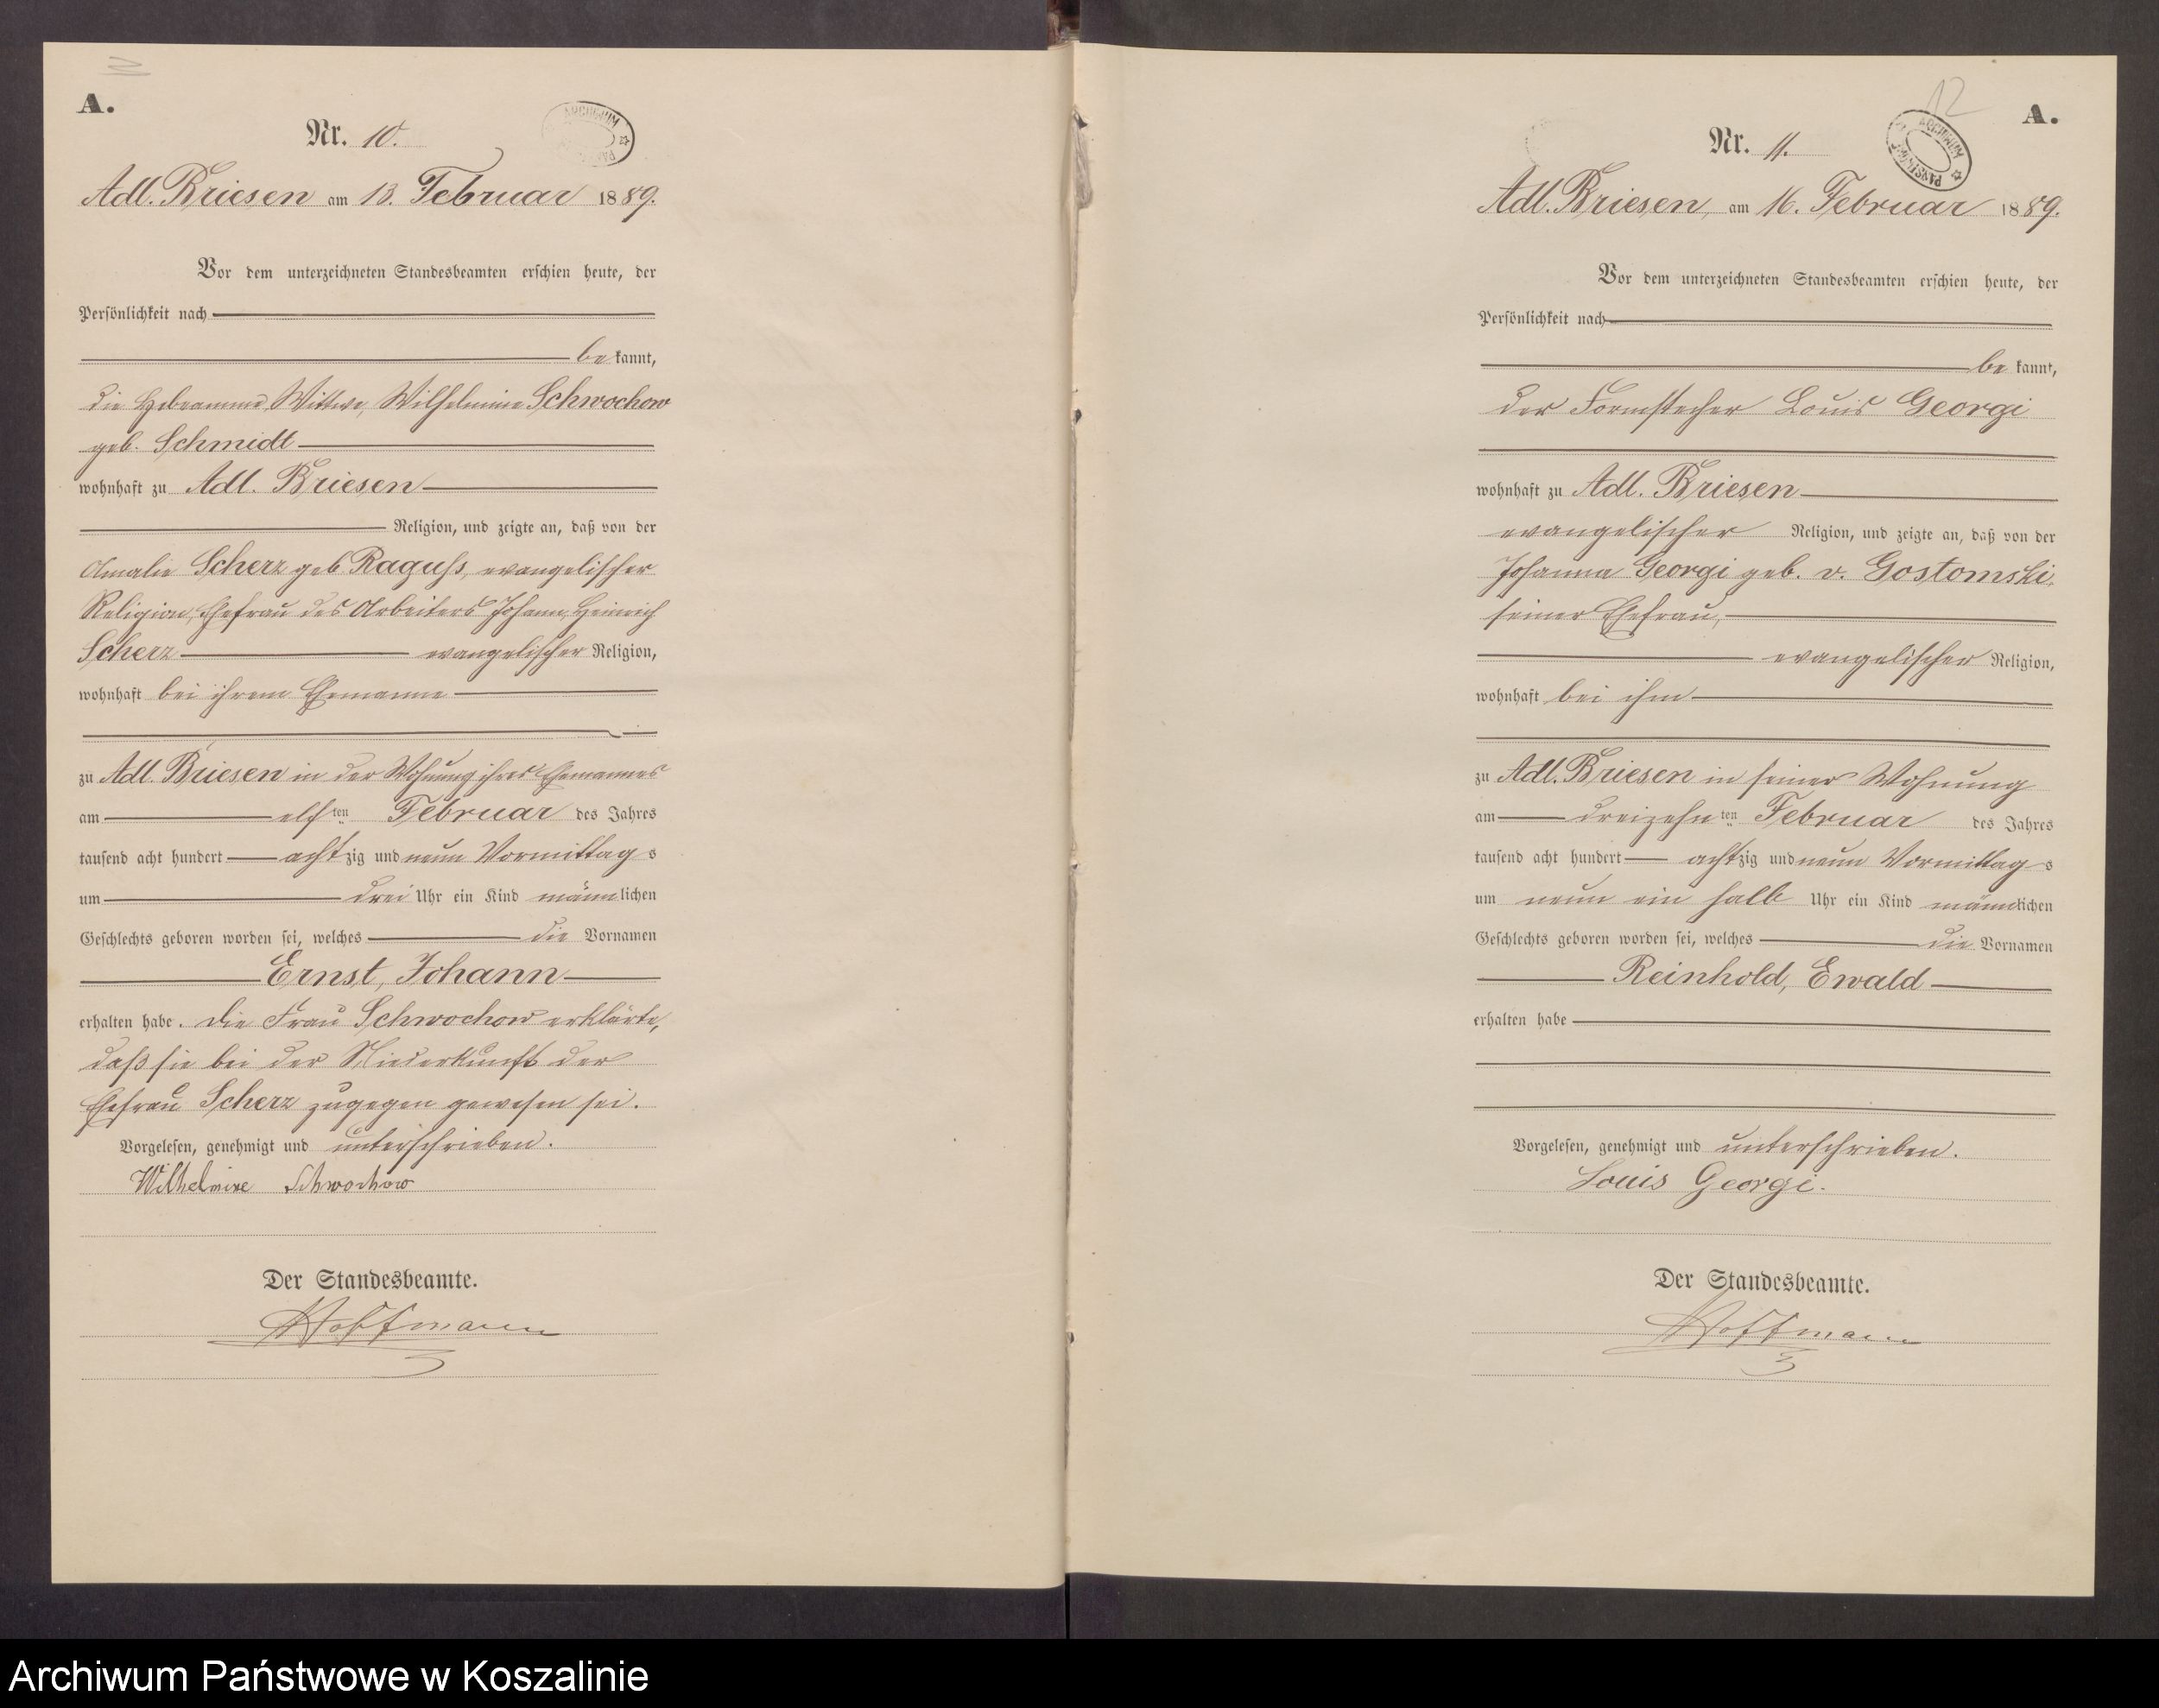 A.
Nr. 10.
Adl. Briesen am 13. Februar 1889.
Vor dem unterzeichneten Standesbeamten erschien heute, der
Persönlichkeit nach
be kannt,
die Hebeamme, Wittwe, Wilhelmine Schwochow
geb. Schmidt
wohnhaft zu Adl. Briesen
Religion, und zeigte an, daß von der
Amalie Scherz geb Raguss, evangelischer
Religion, Ehefrau des Arbeiters Johann, Heinrich
Scherz evangelischer Religion,
wohnhaft bei ihrem Ehemanne
zu Adl. Briesen in der Wohnung ihres Ehemannes
am elf ten Februar des Jahres
tausend acht hundert acht zig und neun Vormittag s
um drei Uhr ein Kind männ lichen
Geschlechts geboren worden sei, welches die Vornamen
Ernst, Johann
erhalten habe. Die Frau Schwochow erklärte,
daß sie bei der Niederkunft der
Ehefrau Scherz zugegen gewesen sei.
Vorgelesen, genehmigt und unterschrieben.
Wilhelmine Schwochow
Der Standesbeamte.
Hoffmann
12
A.
ARCHIWUM PAŃSTWOWE
Nr. 11.
Adl. Briesen, am 16. Februar 1889.
Vor dem unterzeichneten Standesbeamten erschien heute, der
Persönlichkeit nach
be kannt,
der Formstecher Louis Georgi
wohnhaft zu Adl. Briesen
evangelischer Religion, und zeigte an, daß von der
Johanna Georgi geb. v. Gostomski,
seiner Ehefrau,
evangelischer Religion,
wohnhaft bei ihm
zu Adl. Briesen in seiner Wohnung
am dreizehn ten Februar des Jahres
tausend acht hundert acht zig und neun Vormittag s
um neun ein halb Uhr ein Kind männ lichen
Geschlechts geboren worden sei, welches die Vornamen
Reinhold, Ewald
erhalten habe
Vorgelesen, genehmigt und unterschrieben.
Louis Georgi.
Der Standesbeamte.
Hoffmann
Archiwum Państwowe w Koszalinie